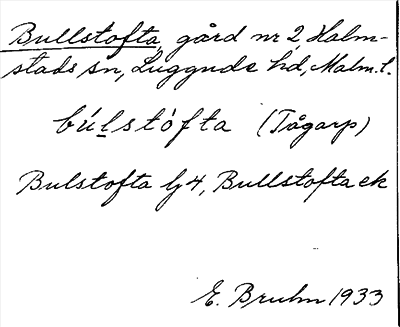 Bullstofta, gård nr 2, Halm-
stads sn, Luggude hd, Malm. l.
bú̯lstòfta (Tågarp)
Bulstofta lj 4, Bullstofta ek
E. Bruhn 1933